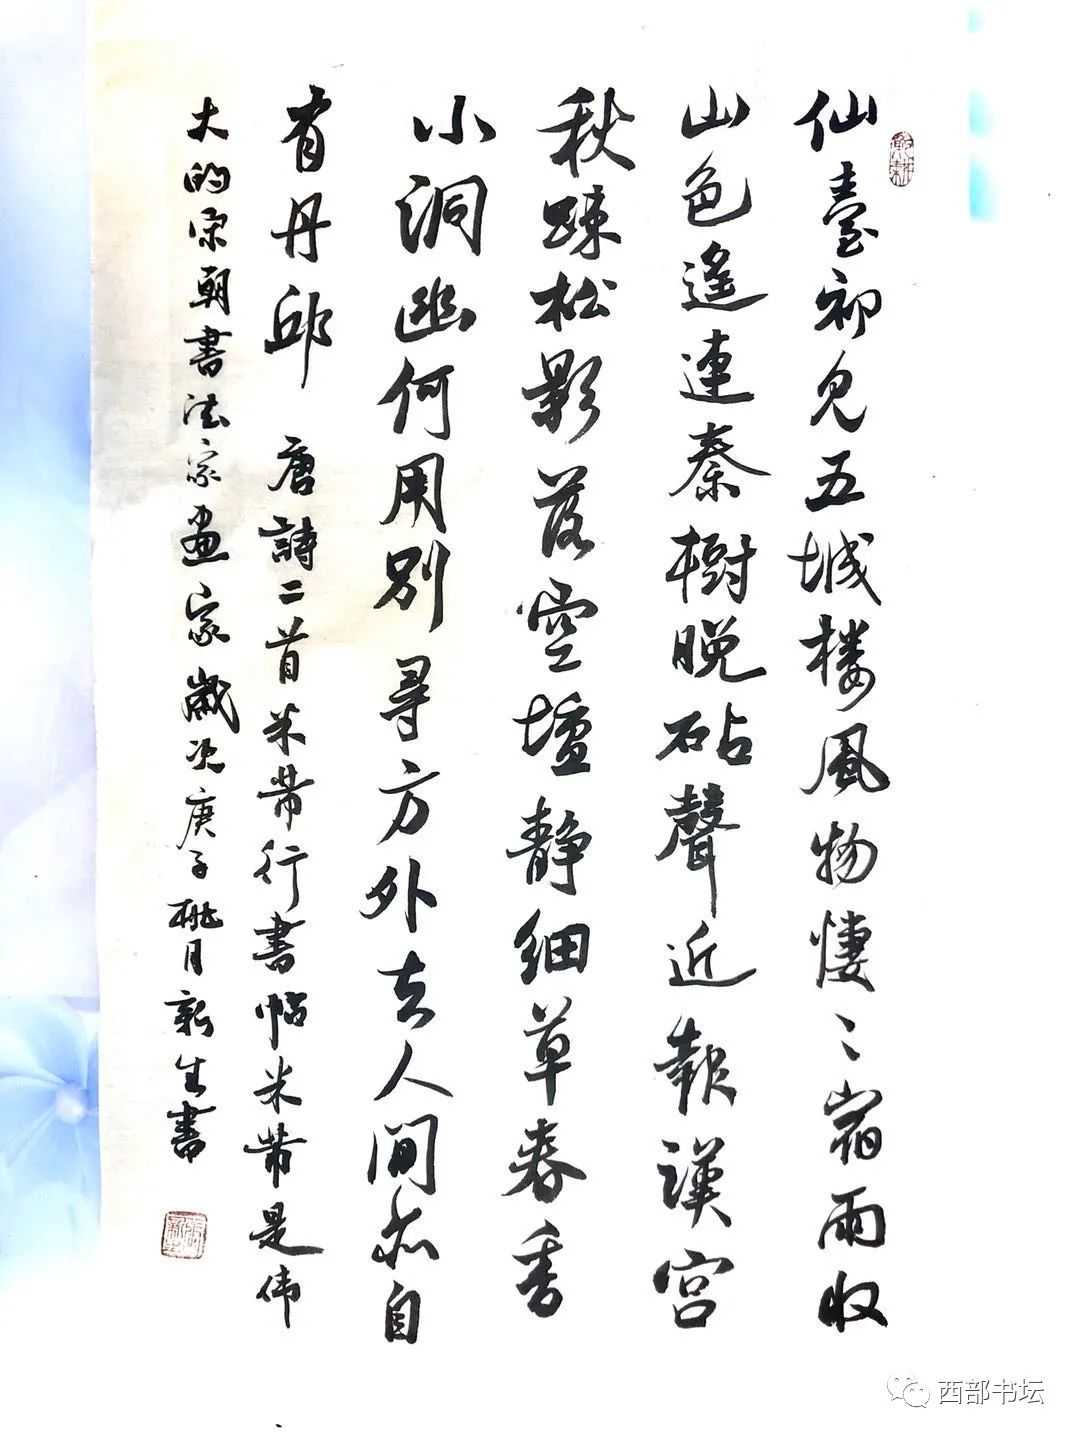 仙臺初見五城楼風物悽〻宿雨收
山色遙連秦樹晚砧聲近報漢宮
秋踈松影落空壇静細草春香
小洞幽何用別尋方外去人間亦自
有丹邱 唐詩二首米芾行書帖米芾是伟
大的宋朝書法家画家歲次庚子桃月新生書
西部书坛